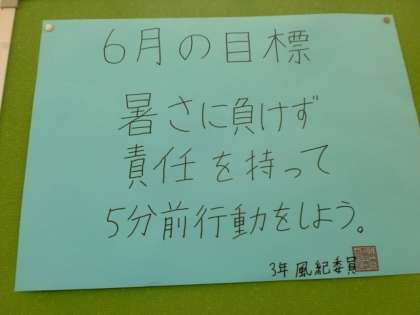 6月の目標
暑さに負けず
責任を持って
5分前行動をしよう。
3年 風紀委員